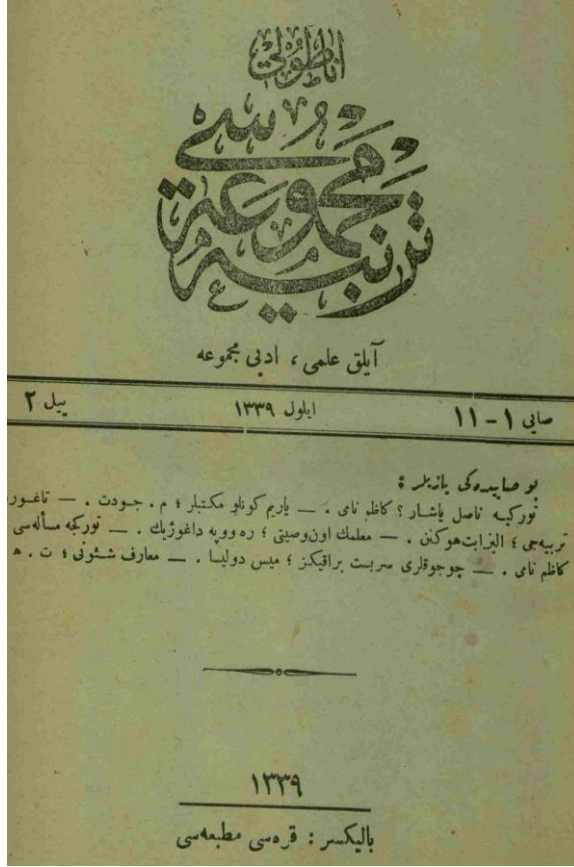 اناطولی
تربیه مجموعه‌سی
آیلق علمی ، ادبی مجموعه
صایی ۱ - ۱۱
ایلول ۱۳۳۹
ییل ۲
بو صاییده‌کی یازیلر :
تورکیه ناصل یاشار ؟ کاظم نامی . — یاریم کونلو مکتبلر ؛ م . جودت . — تاغور
تربیه‌جی ؛ الیزابت هوکنن . — معلمك اون وصیتی ؛ ره‌وویه داغوژیك . — تورکجه مسأله‌سی
کاظم نامی . — چوجوقلری سربست براقیکز ؛ میس دولیسا . — معارف شئونی ؛ ت . ه
۱۳۳۹
بالیکسر : قره‌سی مطبعه‌سی